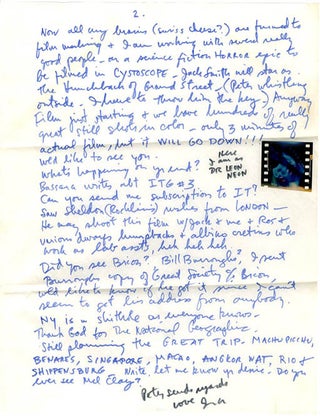 2.
Now all my brains (swiss cheese?) are turned to
film making & I am working with several really
good people – on a science fiction HORROR epic to
be filmed in CYSTOSCOPE – Jack Smith will star as
the Hunchback of Grand Street – (Pete whistling
outside – I have to throw him the key –) Anyway
Film just starting & we have hundreds of really
great still shots in color – only 3 minutes of
actual film, but it WILL GO DOWN!!!
wed like to see you.
Whats happening on yr end?
Here
I am as
DR LEON
NEON
writes abt ITG #3.
Can you send me subscription to IT?
Saw Sheldon (Rochlin) rushes from LONDON –
He may shoot this film w/ Jack & me & Ros &
various dwarves, humpbacks & albino cretins who
work as lab assts, heh heh heh.
Did you see Brion?, Bill Burroughs?, I sent
Burroughs copy of Great Society % Brion,
wld like to know if he got it since I can't
seem to get his address from anybody.
NY is a shithole as everyone knows –
Thank God for The National Geographic.
Still planning the GREAT TRIP – MACHU PICCHU,
BENARES, SINGAPORE, MACAO, ANGKOR WAT, RIO &
SHIPPENSBURG Write, let me know yr desire. Do you
ever see Mel Clay?
Petey sends regards
love Ira